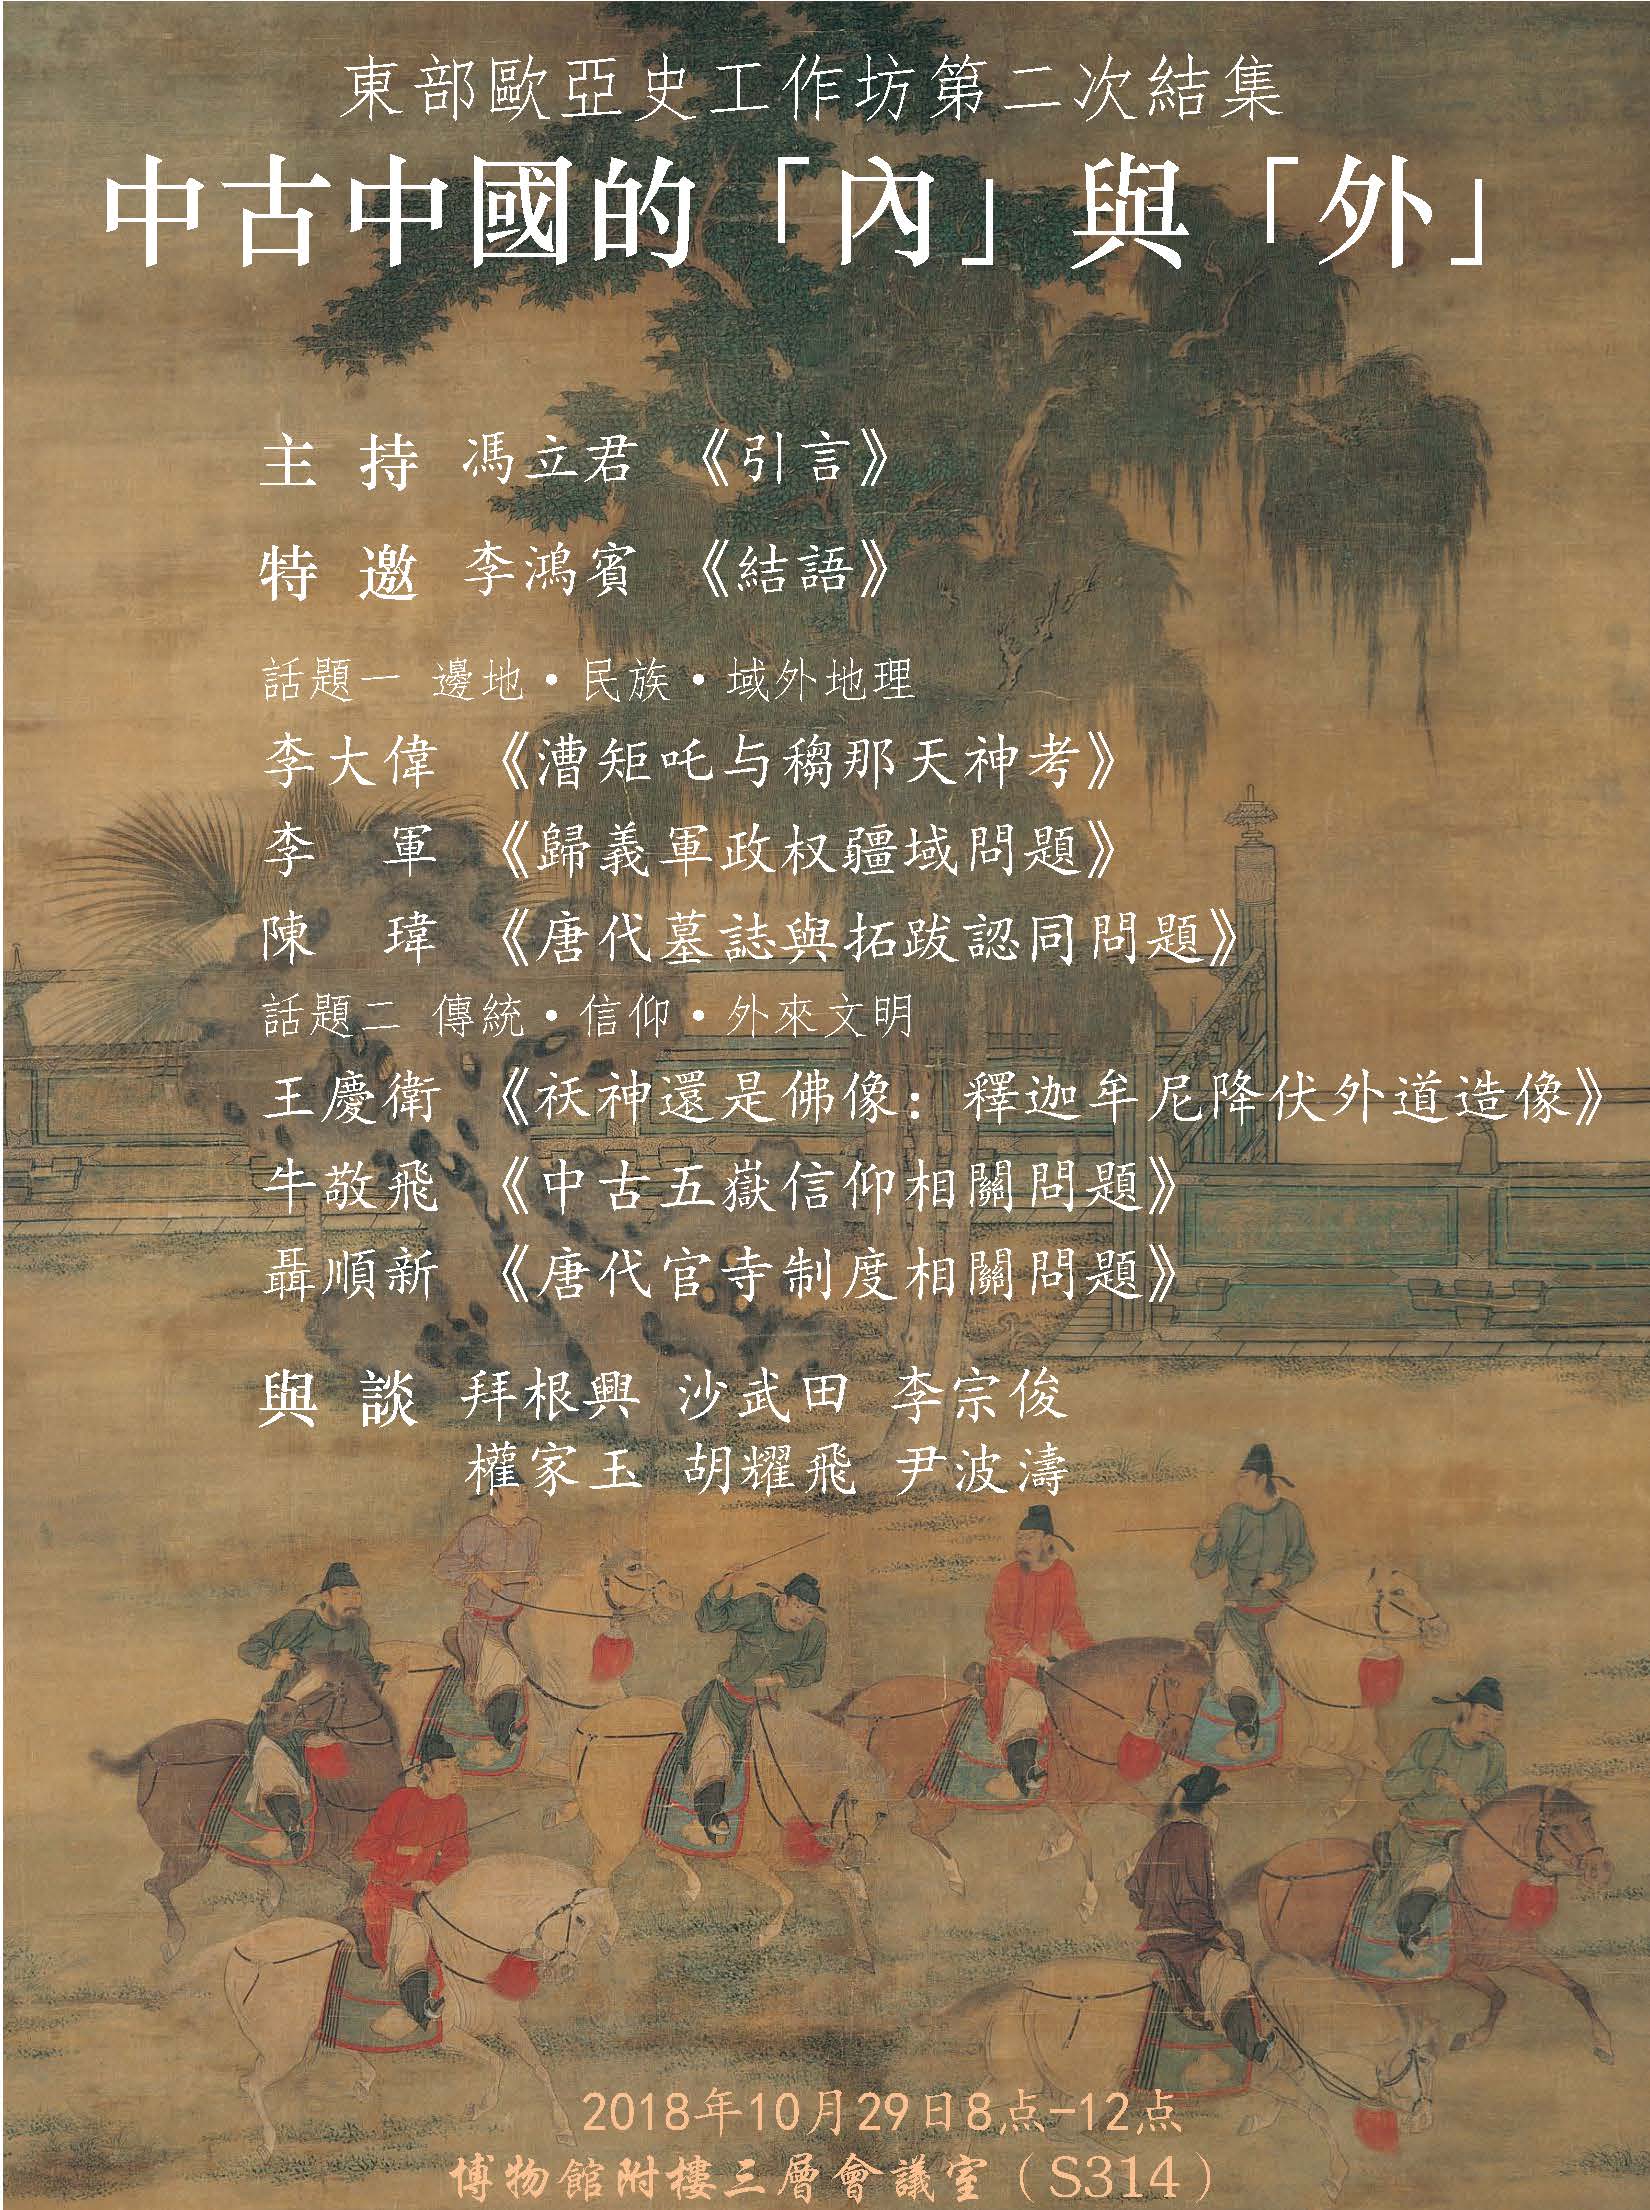 東部歐亞史工作坊第二次結集
中古中國的「內」與「外」
主 持 馮立君 《引言》
特 邀 李鴻賓 《結語》
話題一 邊地·民族·域外地理
李大偉 《漕矩吒与穪那天神考》
李 軍 《歸義軍政权疆域問題》
陳 瑋 《唐代墓誌與拓跋認同問題》
話題二 傳統·信仰·外來文明
王慶衛 《祆神還是佛像：釋迦牟尼降伏外道造像》
牛敬飛 《中古五嶽信仰相關問題》
聶順新 《唐代官寺制度相關問題》
與 談 拜根興 沙武田 李宗俊
權家玉 胡耀飛 尹波濤
2018年10月29日8点-12点
博物館附樓三層會議室（S314）